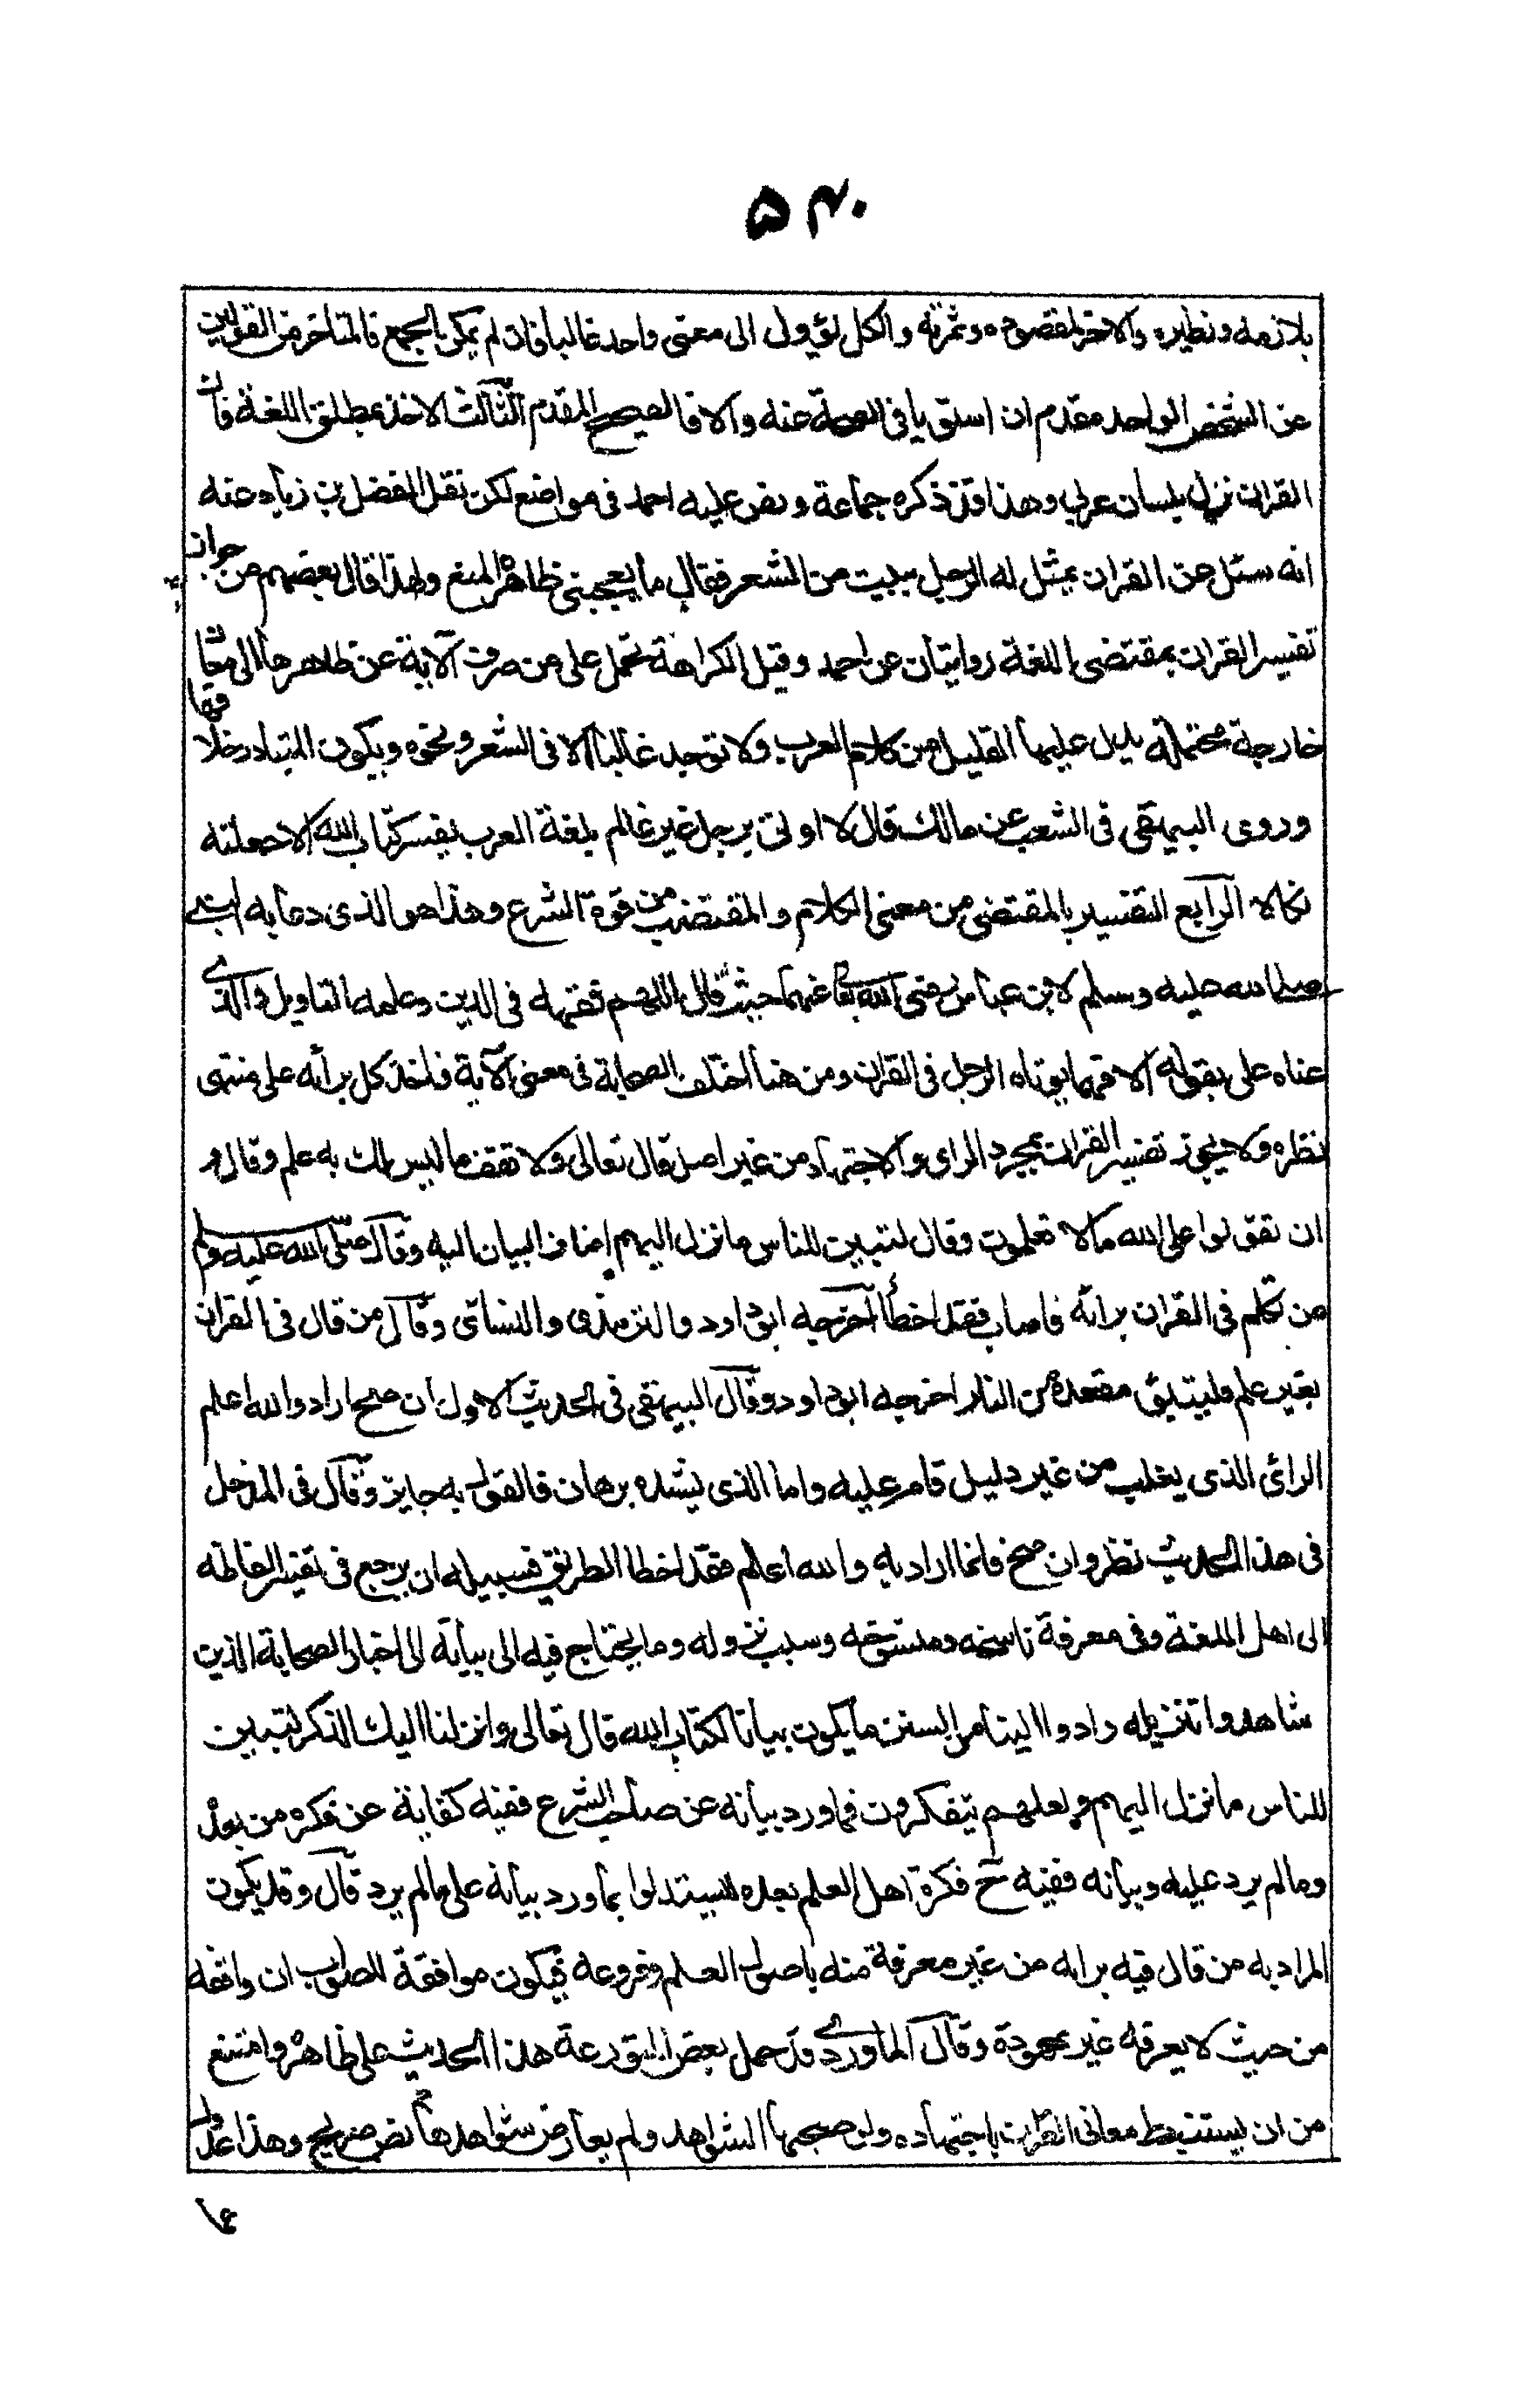 ۵۴۰
بلازمه ونظيره والاخر بمقصوده وثمرته والكل يؤول الى معنى واحد غالبا فان لم يمكن الجمع فالمتاخر من القولين
عن الشخص الواحد مقدم ان استويا فى الصحة عنه والا فالصحيح المقدم الثالث الاخذ بمطلق اللغة فان
القران نزل بلسان عربى وهذا قد ذكره جماعة ونص عليه احمد فى مواضع لكن نقل الفضل بن زياد عنه
انه سئل عن القران يمثل له الرجل ببيت من الشعر فقال ما يعجبنى ظاهره المنع ولهذا قال بعضهم من جواز
تفسير القران بمقتضى اللغة روايتان عن احمد وقيل الكراهة تحمل على من صرف الآية عن ظاهرها الى معان
خارجة محتملة يدل عليها القليل من كلام العرب ولا توجد غالبا الا فى الشعر ونحوه ويكون المتبادر خلافها
وروى البيهقى فى الشعب عن مالك قال لا اوتى برجل غير عالم بلغة العرب يفسر كتاب الله الا جعلته
نكالا الرابع التفسير بالمقتضى من معنى الكلام والمقتضب من قوة الشرع وهذا هو الذى دعا به النبى
صلى الله عليه وسلم لابن عباس رضى الله تعا عنهما حيث قال اللهم فقهه فى الدين وعلمه التاويل والذى
عناه على بقوله الا فهما يوتاه الرجل فى القران ومن هنا اختلف الصحابة فى معنى الآية فاخذ كل برأيه على منتهى
نظره ولا يجوز تفسير القران بمجرد الراى والاجتهاد من غير اصل قال تعالى ولا تقف ما ليس لك به علم وقال و
ان تقولوا على الله مالا تعلمون وقال لتبين للناس ما نزل اليهم اضاف البيان اليه وقال صلى الله عليه وسلم
من تكلم فى القران برأيه فاصاب فقد اخطأ اخرجه ابوداود والترمذى والنسائى وقال من قال فى القران
بغير علم فليتبوّء مقعده من النار اخرجه ابوداود وقال البيهقى فى الحديث الاول ان صح اراد والله اعلم
الرائى الذى يغلب من غير دليل قام عليه واما الذى يشده برهان فالقول به جايز وقال فى المدخل
فى هذا الحديث نظر وان صح فانما اراد به والله اعلم فقد اخطا الطريق فسبيله ان يرجع فى تفسير الفاظه
الى اهل اللغة وفى معرفة ناسخه ومنسوخه وسبب نزوله وما يحتاج فيه الى بيانه الى اخبار الصحابة الذين
شاهدوا تنزيله وادوا الينا من السنن ما يكون بيانا لكتاب الله قال تعالى وانزلنا اليك الذكر لتبين
للناس ما نزل اليهم ولعلهم يتفكرون فما ورد بيانه عن صاحب الشرع ففيه كفاية عن فكره من بعده
وما لم يرد عليه وبيانه ففيه ح فكرة اهل العلم بعده ليستدلوا بما ورد بيانه على مالم يرد قال وقد يكون
المراد به من قال فيه برايه من غير معرفة منه باصول العلم وفروعه فيكون موافقة للصواب ان وافقه
من حيث لا يعرفه غير محمودة وقال الماوردى قد حمل بعض المتورعة هذا الحديث على ظاهره وامتنع
من ان يستنبط معانى القران باجتهاده ولو صحبها الشواهد ولم يعارض شواهدها نص صريح وهذا عدول